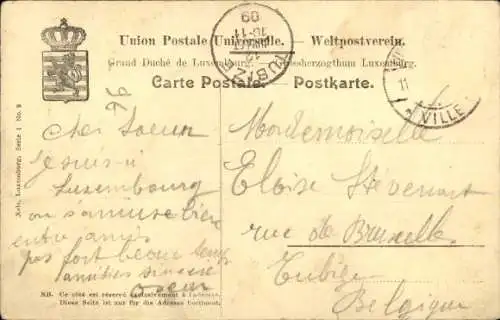 Union Postale Universelle. — Weltpostverein.
Grand Duché de Luxembourg. — Grossherzogthum Luxemburg.
Carte Postale. — Postkarte.
TUBIZE
10-11
09
VILLE
11
Nels, Luxemburg, Serie 1 No. 9
Cher Soeur
Je suis à
Luxembourg
on s'amuse bien
entre amis
pas fort beau temps
amitiés sincère
Mademoiselle
Eloïse Stévenart
rue de Bruxelle
Tubize
Belgique
NB. Ce côté est réservé exclusivement à l'adresse.
Diese Seite ist nur für die Adresse bestimmt.